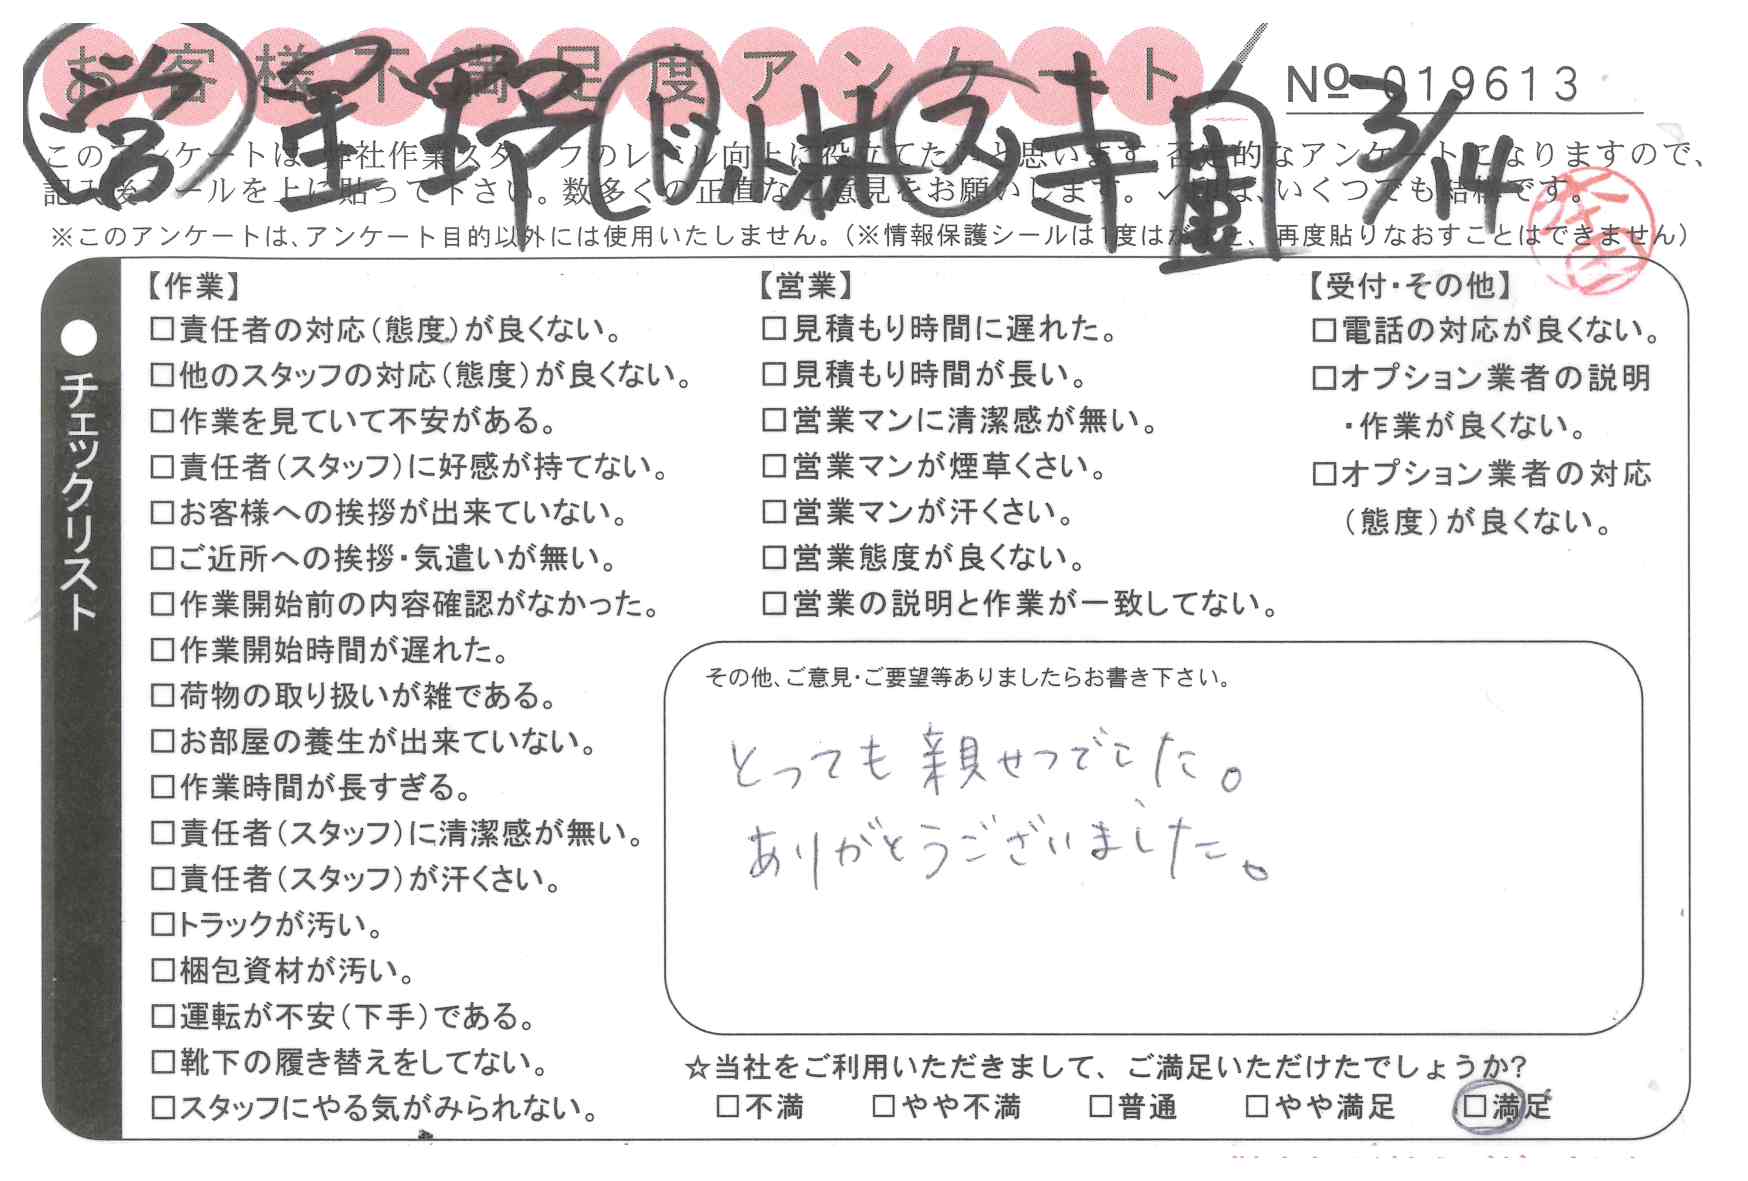 お客様不満足度アンケート
№ 019613
営 星野 ド 小林 ラ 寺 3/14
このアンケートは、弊社作業スタッフのレベル向上に役立てたいと思います。否定的なアンケートになりますので、
記入後シールを上に貼って下さい。数多くの正直なご意見をお願いします。✓印は、いくつでも結構です。
※このアンケートは、アンケート目的以外には使用いたしません。（※情報保護シールは1度はがすと、再度貼りなおすことはできません）
●チェックリスト
【作業】
□責任者の対応（態度）が良くない。
□他のスタッフの対応（態度）が良くない。
□作業を見ていて不安がある。
□責任者（スタッフ）に好感が持てない。
□お客様への挨拶が出来ていない。
□ご近所への挨拶・気遣いが無い。
□作業開始前の内容確認がなかった。
□作業開始時間が遅れた。
□荷物の取り扱いが雑である。
□お部屋の養生が出来ていない。
□作業時間が長すぎる。
□責任者（スタッフ）に清潔感が無い。
□責任者（スタッフ）が汗くさい。
□トラックが汚い。
□梱包資材が汚い。
□運転が不安（下手）である。
□靴下の履き替えをしてない。
□スタッフにやる気がみられない。
【営業】
□見積もり時間に遅れた。
□見積もり時間が長い。
□営業マンに清潔感が無い。
□営業マンが煙草くさい。
□営業マンが汗くさい。
□営業態度が良くない。
□営業の説明と作業が一致してない。
【受付・その他】
□電話の対応が良くない。
□オプション業者の説明
・作業が良くない。
□オプション業者の対応
（態度）が良くない。
その他、ご意見・ご要望等ありましたらお書き下さい。
とっても親せつでした。
ありがとうございました。
☆当社をご利用いただきまして、ご満足いただけたでしょうか?
□不満 □やや不満 □普通 □やや満足 □満足